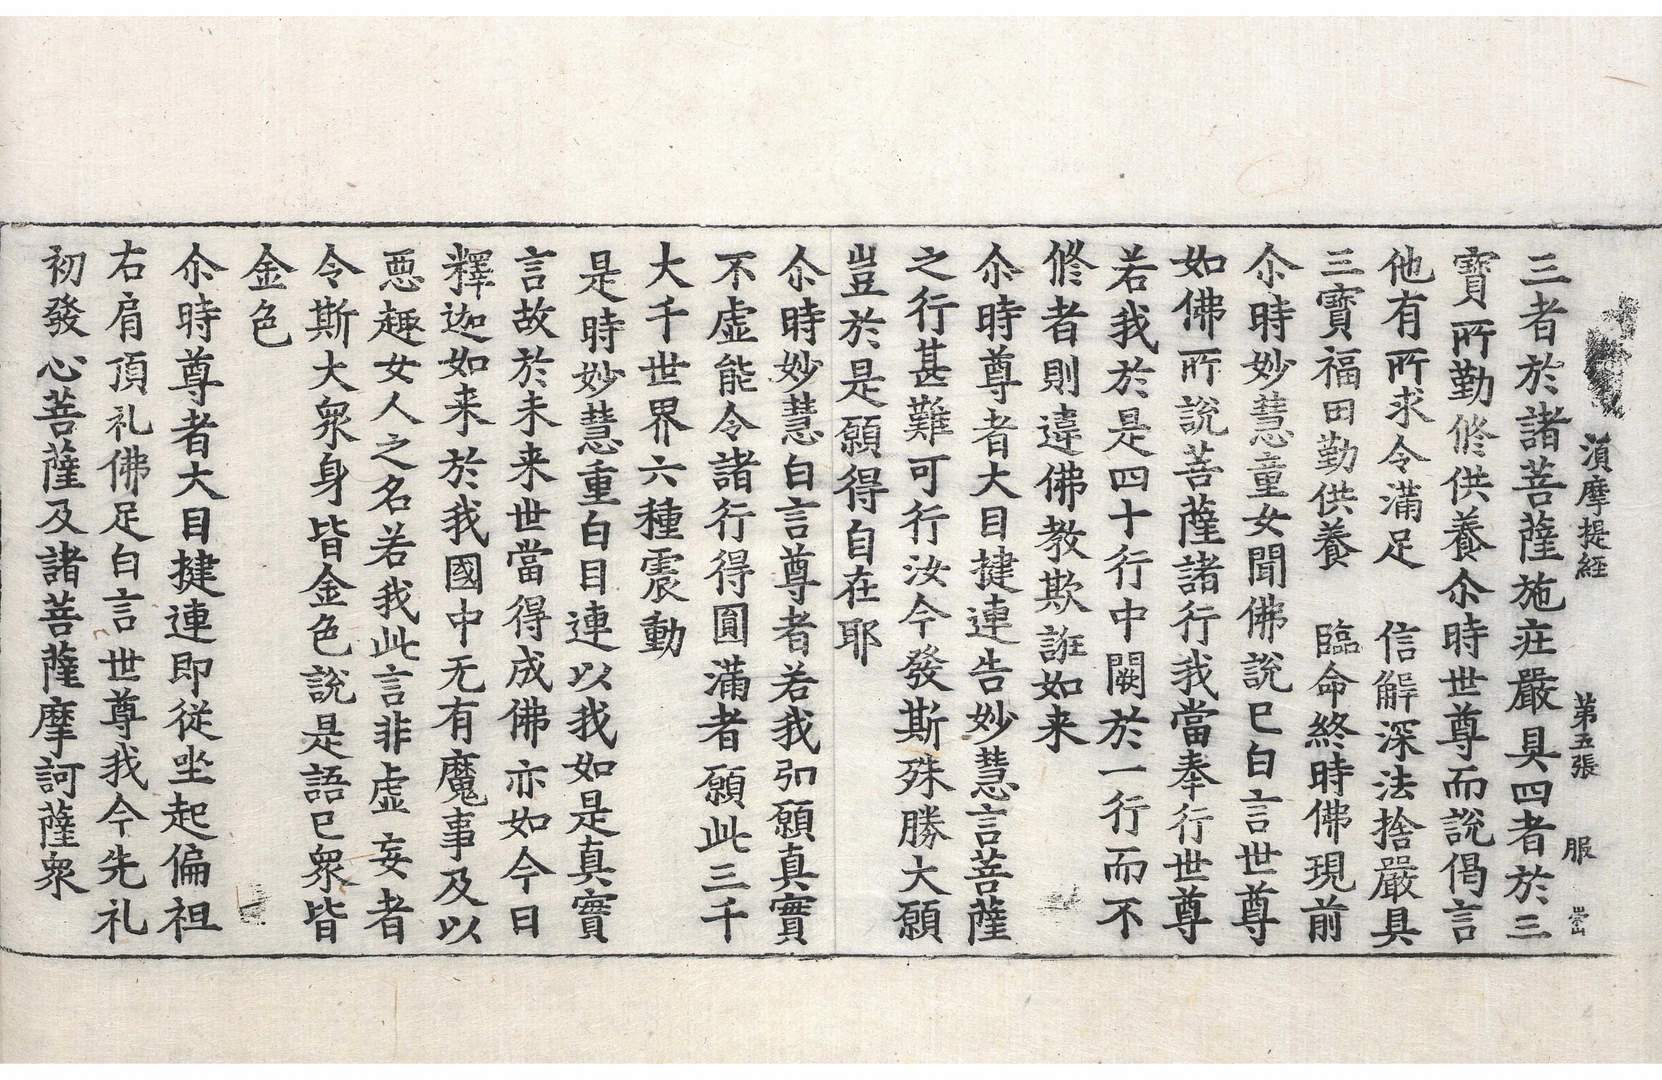 湏摩提経　第五張　服
三者於諸菩薩施庄嚴具四者於三
寶所勤修供養尒時世尊而說偈言
他有所求令滿足　信解深法捨嚴具
三寶福田勤供養　臨命終時佛現前
尒時妙慧童女聞佛說已白言世尊
如佛所說菩薩諸行我當奉行世尊
若我於是四十行中闕於一行而不
修者則違佛教欺誑如来
尒時尊者大目揵連告妙慧言菩薩
之行甚難可行汝今發斯殊勝大願
豈於是願得自在耶
尒時妙慧白言尊者若我弘願真實
不虛能令諸行得圓滿者願此三千
大千世界六種震動
是時妙慧重白目連以我如是真實
言故於未来世當得成佛亦如今日
釋迦如来於我國中无有魔事及以
惡趣女人之名若我此言非虛妄者
令斯大衆身皆金色說是語已衆皆
金色
尒時尊者大目揵連即從坐起偏袒
右肩頂礼佛足白言世尊我今先礼
初發心菩薩及諸菩薩摩訶薩衆